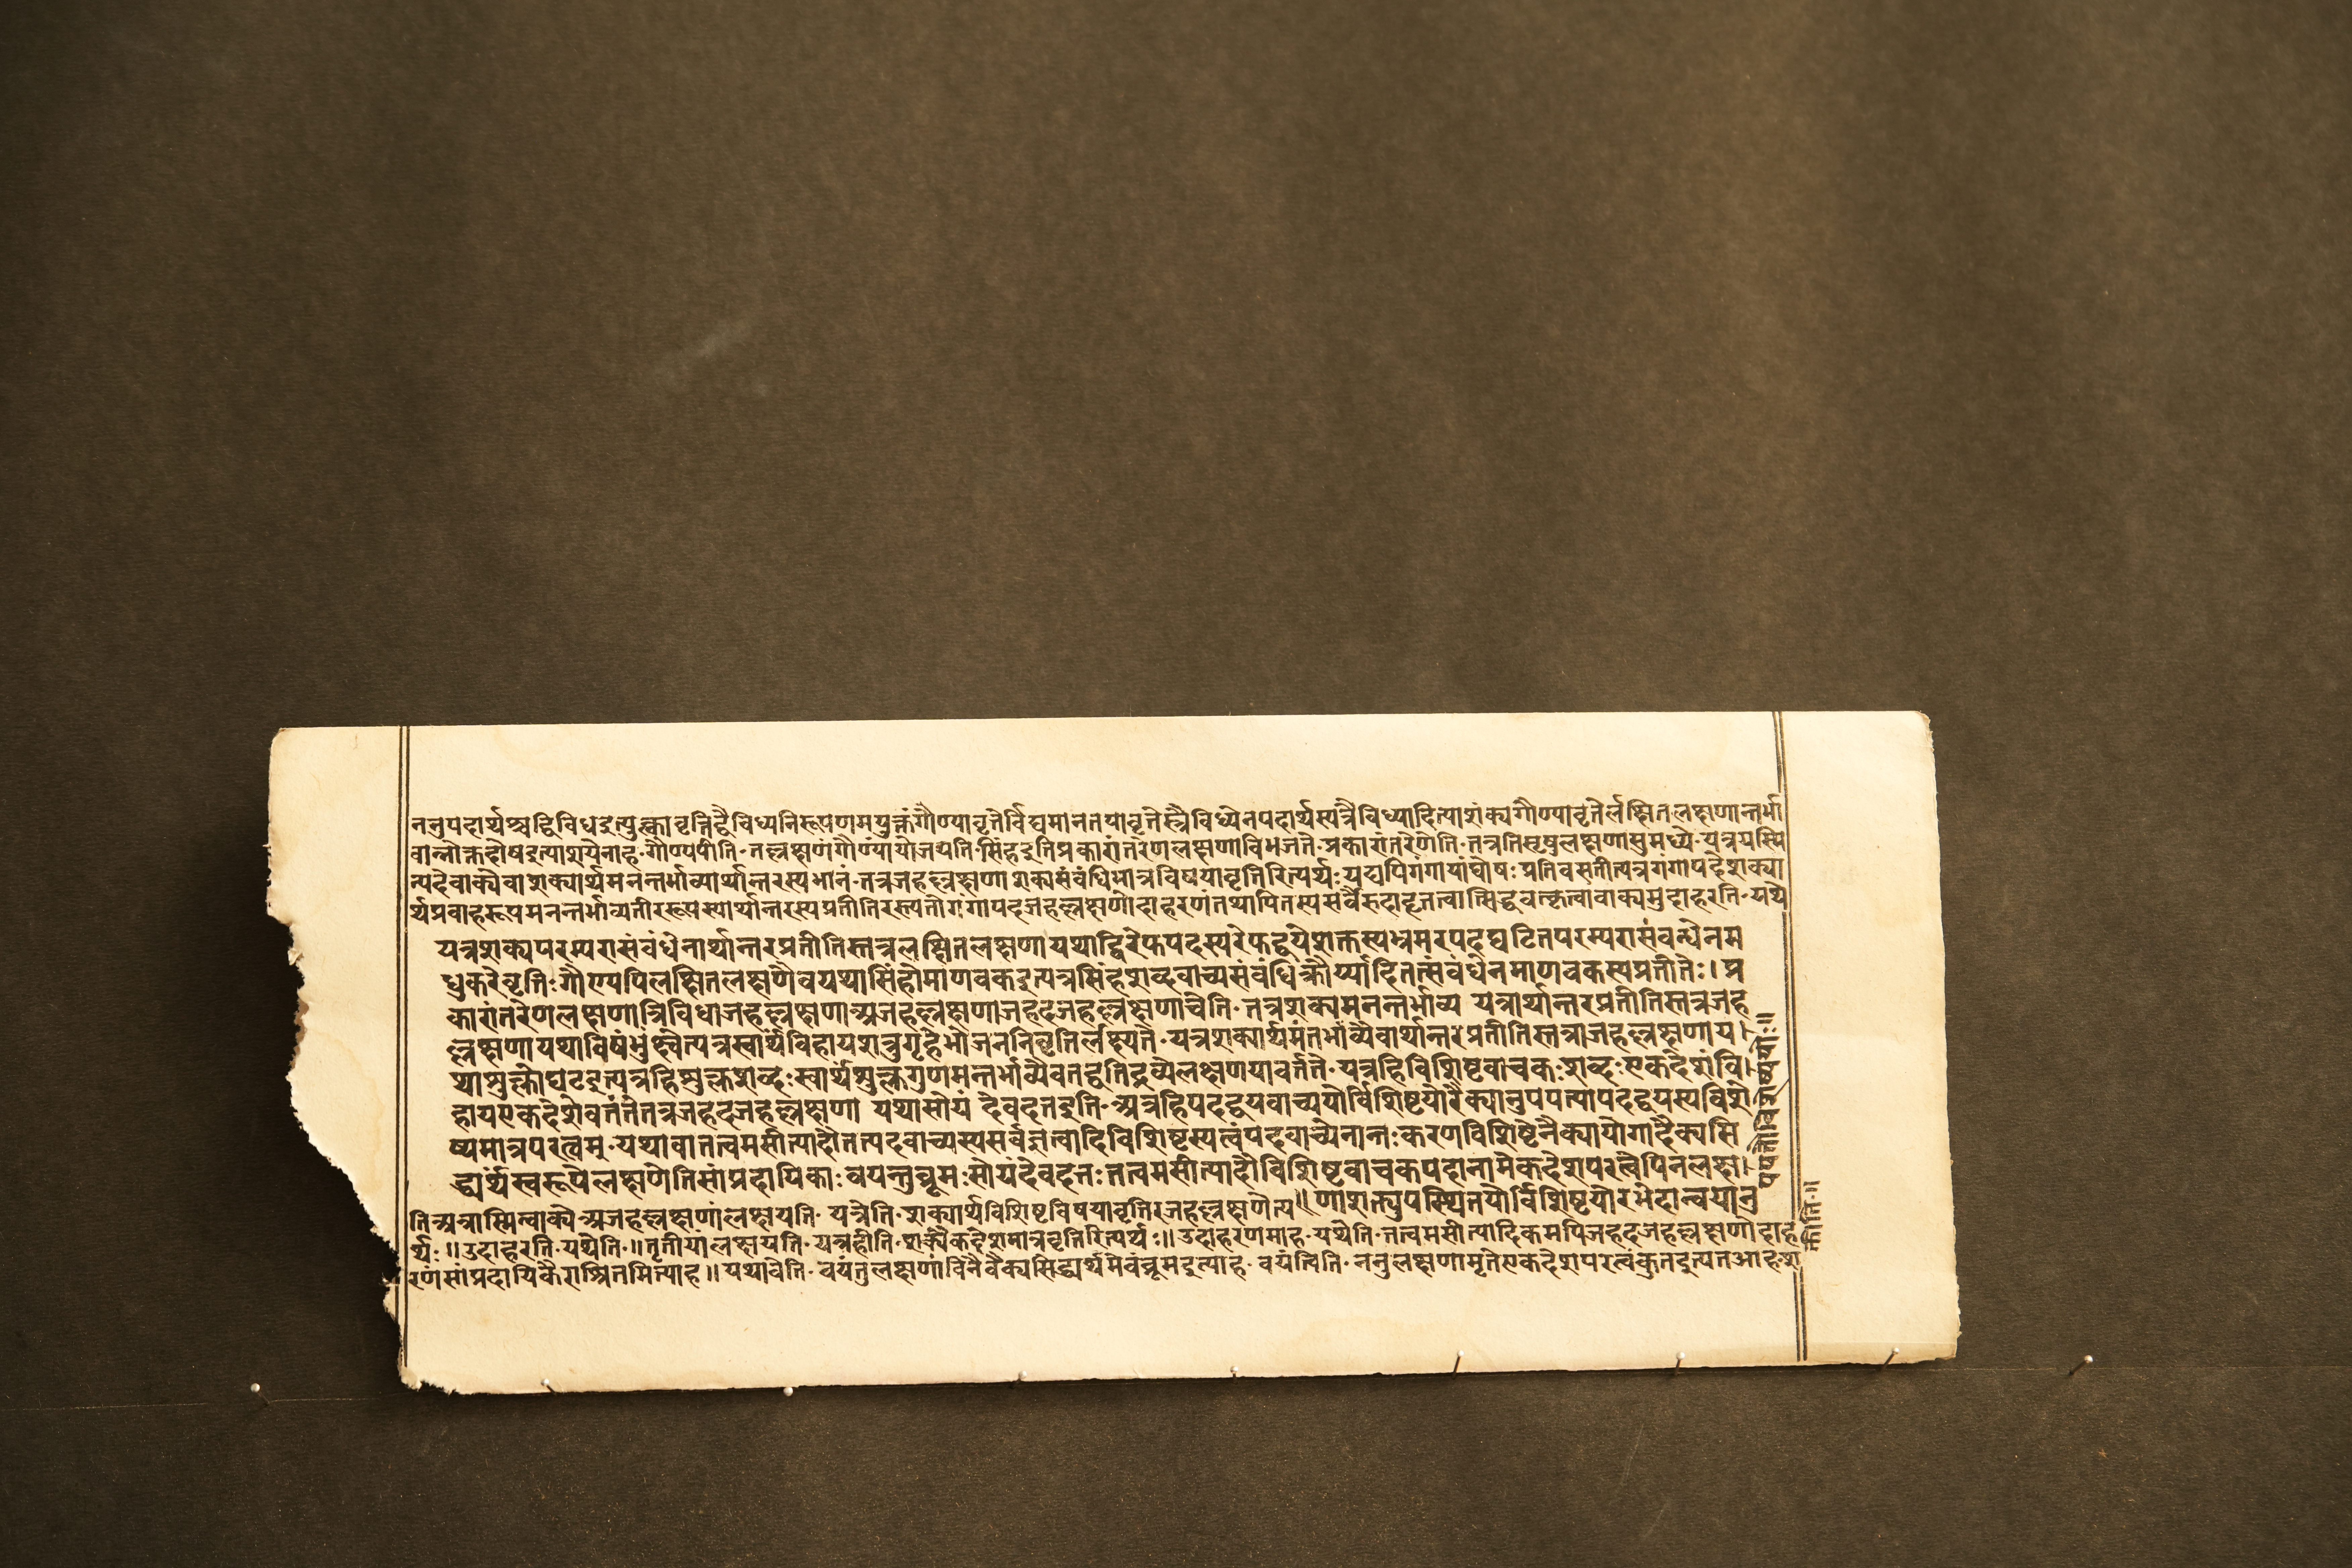 ननुपदार्थश्चद्विविधइत्युक्त्वावृत्तिद्वैविध्यनिरूपणमयुक्तंगौण्यावृत्तेर्विद्यमानतयावृत्तेस्त्रैविध्येनपदार्थस्यत्रैविध्यादित्याशंक्यगौण्यावृत्तेर्लक्षितलक्षणान्तर्भा
वान्नोक्तदोषइत्याशयेनाह॰गौण्यपीति॰तल्लक्षणंगौण्यायोजयति॰सिंहइतिप्रकारांतरेणलक्षणाविभजते॰प्रकारांतरेणेति॰तत्रतिसृषुलक्षणासुमध्ये॰यत्रयस्मि
न्पदेवाक्येवाशक्यार्थमनन्तर्भाव्यार्थान्तरस्यभानं॰तत्रजहल्लक्षणाशक्यसंबंधिमात्रविषयावृत्तिरित्यर्थः॰यद्यपिगंगायांघोषः प्रतिवसतीत्यत्रगंगापदेशक्या
र्थप्रवाहरूपमनन्तर्भाव्यतीररूपस्यार्थान्तरस्यप्रतीतिरस्त्यतोगंगापदजहल्लक्षणोदाहरणंतथापितस्यसर्वैरुदाहृतत्वात्सिद्धवत्कृत्वावाक्यमुदाहरति॰यथे
यत्रशक्यपरम्परासंबंधेनार्थान्तरप्रतीतिस्तत्रलक्षितलक्षणायथाद्विरेफपदस्यरेफद्वयेशक्तस्यभ्रमरपदघटितपरम्परासंवन्धेनम
धुकरेवृत्तिः॰गौण्यपिलक्षितलक्षणैवयथासिंहोमाणवकइत्यत्रसिंहशब्दवाच्यसंबंधिक्रौर्य्यादितत्संबंधेनमाणवकस्यप्रतीतेः।प्र
कारांतरेणलक्षणात्रिविधाजहल्लक्षणाअजहल्लक्षणाजहदजहल्लक्षणाचेति॰तत्रशक्यमनन्तर्भाव्य यत्रार्थान्तरप्रतीतिस्तत्रजह
ल्लक्षणायथाविषंभुंक्ष्वेत्यत्रस्वार्थंविहायशत्रुगृहेभोजननिवृत्तिर्लक्ष्यते॰यत्रशक्यार्थमंतर्भाव्यैवार्थान्तरप्रतीतिस्तत्राजहल्लक्षणाय।
थाशुक्लोघटइत्यत्रहिशुक्लशब्दःस्वार्थंशुक्लगुणमन्तर्भाव्यैवतद्वतिद्रव्येलक्षणयावर्त्तते॰यत्रहिविशिष्टवाचकःशब्दःएकदेशंवि।
हायएकदेशेवर्ततेतत्रजहदजहल्लक्षणा यथासोयं देवदत्तइति॰अत्रहिपदद्वयवाच्ययोर्विशिष्टयोरैक्यानुपपत्त्यापदद्वयस्यविशे
ष्यमात्रपरत्वम्॰यथावातत्वमसीत्यादौतत्पदवाच्यस्यसर्वज्ञत्वादिविशिष्टस्यत्वंपदवाच्येनान्तःकरणविशिष्टेनैक्यायोगादैक्यसि
द्ध्यर्थंस्वरूपेलक्षणेतिसांप्रदायिकाः वयन्तुब्रूमःसोयंदेवदत्तःतत्वमसीत्यादौविशिष्टवाचकपदानामेकदेशपरत्वेपिनलक्षा।
णाशक्त्युपस्थितयोर्विशिष्टयोरभेदान्वयानु
तिअत्रास्मिन्वाक्येअजहल्लक्षणांलक्षयति॰ यत्रेति॰शक्यार्थविशिष्टविषयावृत्तिरजहल्लक्षणेत्य॥
र्थः॥उदाहरति॰यथेति॰॥तृतीयांलक्षयति॰यत्रहीति॰शक्यैकदेशमात्रवृत्तिरित्यर्थः॥उदाहरणमाह॰यथेति॰तत्वमसीत्यादिकमपिजहदजहल्लक्षणोदाह
रणंसांप्रदायिकैराश्रितमित्याह॥यथावेति॰वयंतुलक्षणांविनैवैक्यसिद्ध्यर्थमेवंब्रूमइत्याह॰ वयंत्विति॰ननुलक्षणामृतेएकदेशपरत्वंकुतइत्यतआह॰श